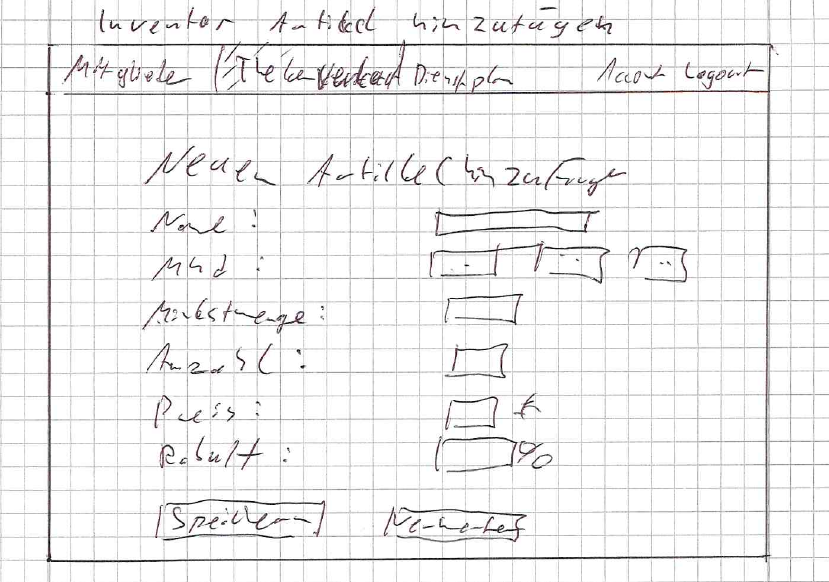 Inventar Artikel hinzufügen
Mitglieder Theken Verkauf Dienstplan Account Logout
Neuen Artikel hinzufügen
Name :
Mhd :
.. .. ..
Mindestmenge :
Anzahl :
Preis : €
Rabatt : %
Speichern